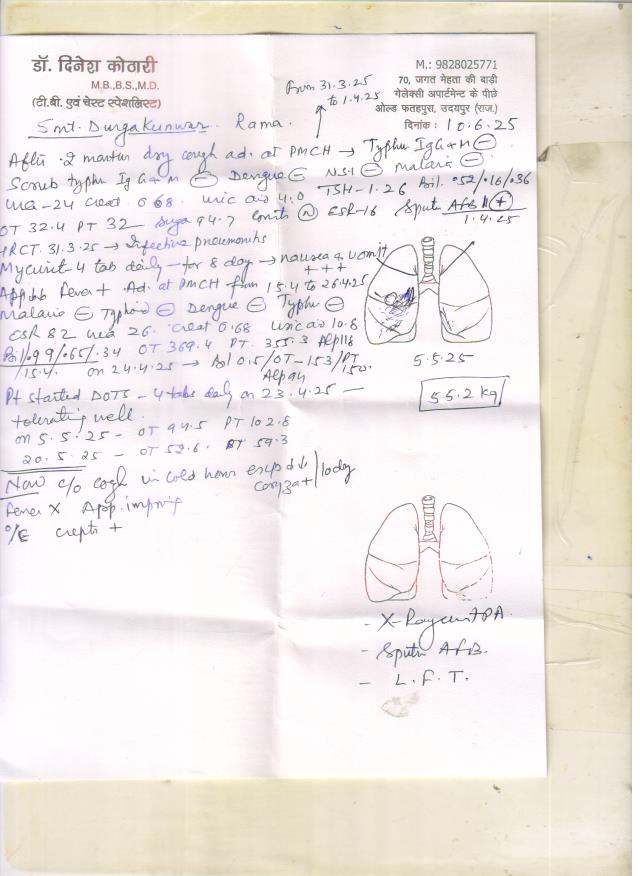 डॉ. दिनेश कोठारी
M.B.,B.S.,M.D.
(टी.बी. एवं चेस्ट स्पेशलिस्ट)
M.: 9828025771
70, जगत मेहता की बाड़ी
गेलेक्सी अपार्टमेन्ट के पीछे
ओल्ड फतहपुरा, उदयपुर (राज.)
दिनांक : 10.6.25
From 31.3.25
to 1.4.25
Smt. Durgakunwar Rama
After 2 months dry cough ad. at PMCH → Typhus IgG+M ⊖
Scrub typhus IgG+M ⊖ Dengue ⊖ NS1 ⊖ Malaria ⊖
Urea-24 creat 0.68 uric acid 4.0 TSH-1.26 Bil .52/.16/.36
OT 32.4 PT 32 Sugar 94.7 Ⓝ ESR-16 Sputum AFB ⊕
1.4.25
HRCT. 31.3.25 → Infective pneumonitis
4 tab daily for 8 day → nausea & vomit
+++
App Fever + Ad. at PMCH from 15.4 to 26.4.25
Malaria ⊖ Typhoid ⊖ Dengue ⊖ Typhus ⊖
ESR 82 urea 26. creat 0.68 uric acid 10.8
Bil .99/.65/.34 OT 369.4 PT. 355.3 Alp 118
15.4. on 24.4.25 → Bil 0.5/OT-153/PT 150.
Alp 94
Pt started DOTS - 4 tabs daily on 23.4.25 —
tolerating well.
on 5.5.25 - OT 94.5 PT 102.8
20.5.25 - OT 52.6. PT 59.3
Now c/o cough in cold hours
coryza + 10 day
Fever X App. improving
O/E crepts +
5.5.25
55.2 kg
- X-Ray chest PA.
- Sputum AFB.
- L.F.T.